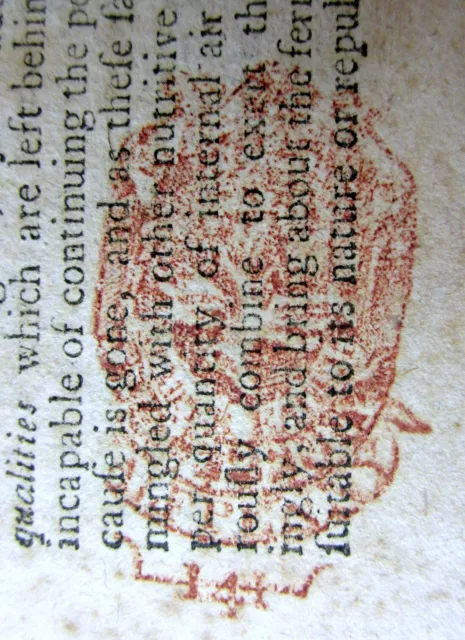 qualities which are left behin
incapable of continuing the po
cauſe is gone, and as theſe fa
mingled with other nutritive
per quantity of internal air
rouſly combine to exert th
ingly, and bring about the fer
ſuitable to its nature or repul